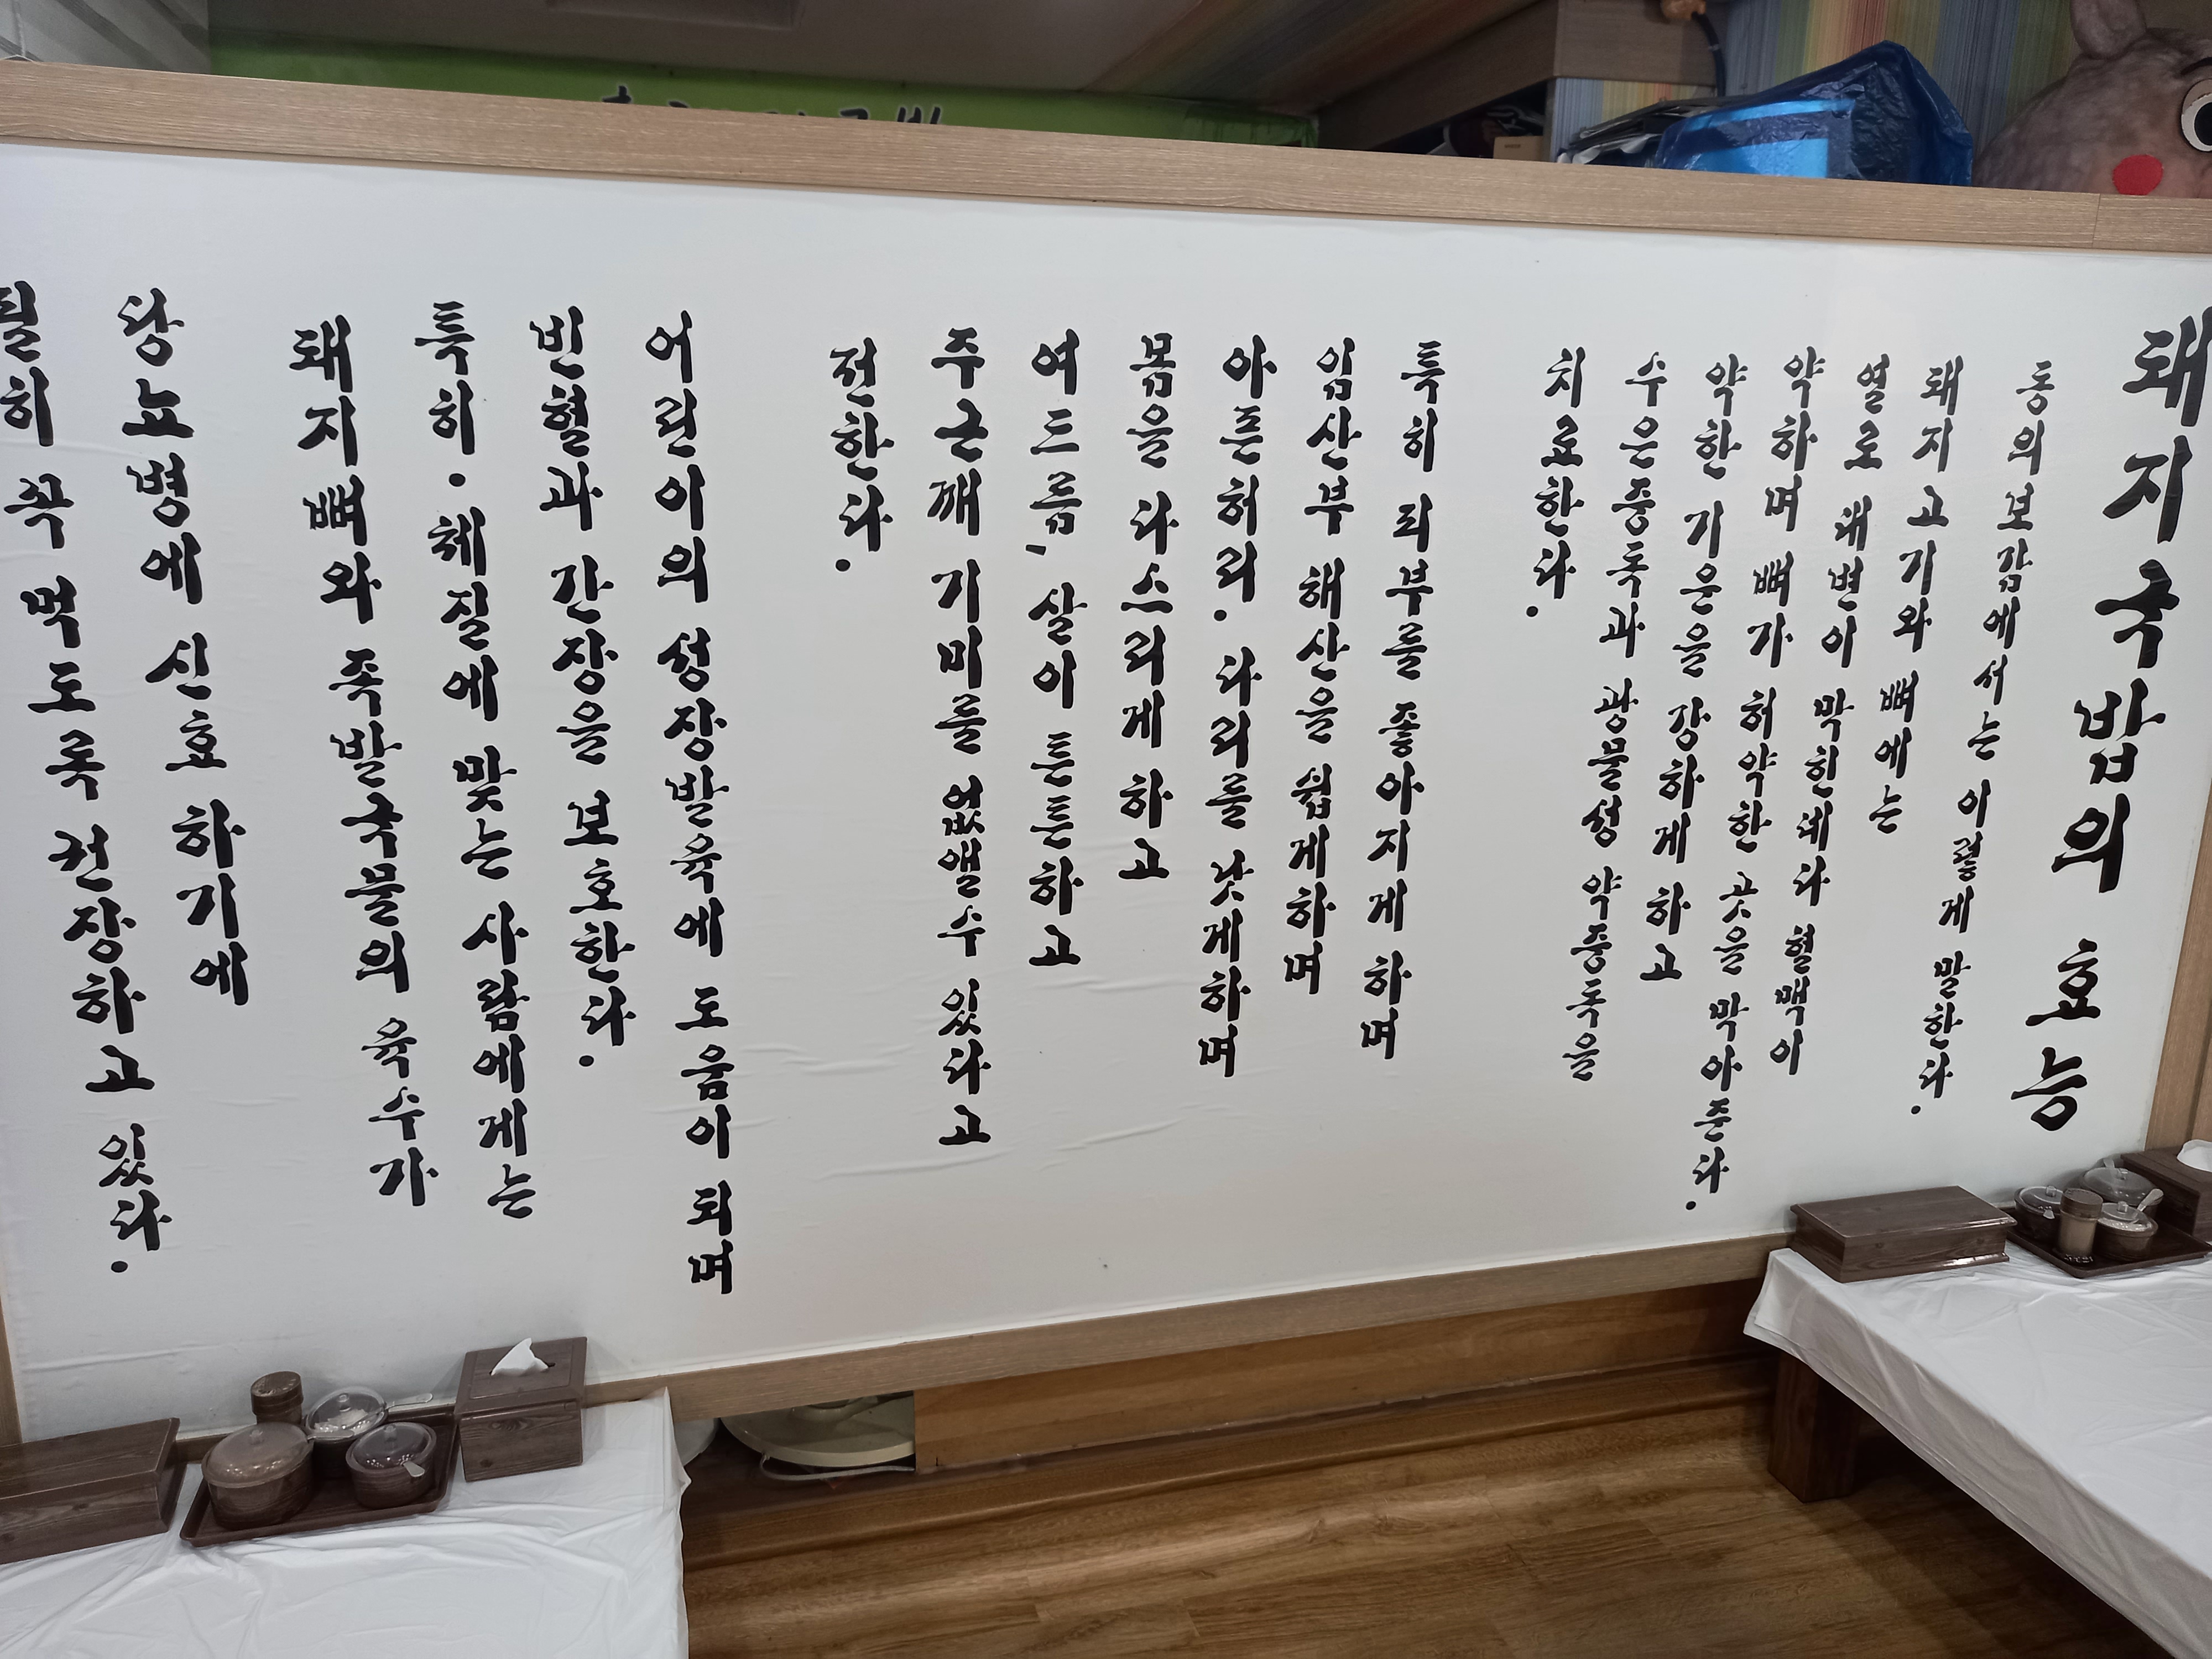 돼지국밥의 효능
동의보감에서는 이렇게 말한다.
돼지고기와 뼈에는
열로 대변이 막힌데다 혈맥이
약하며 뼈가 허약한 곳을 막아준다.
약한 기운을 강하게 하고
수은중독과 광물성 약중독을
치료한다.
특히 피부를 좋아지게 하며
임산부 해산을 쉽게하며
아픈허리. 다리를 낫게하며
몸을 다스리게 하고
여드름, 살이 튼튼하고
주근깨 기미를 없앨수 있다고
전한다.
어린이의 성장발육에 도움이 되며
빈혈과 간장을 보호한다.
특히. 체질에 맞는 사람에게는
돼지뼈와 족발국물의 육수가
당뇨병에 신효 하기에
필히 꼭 먹도록 권장하고 있다.